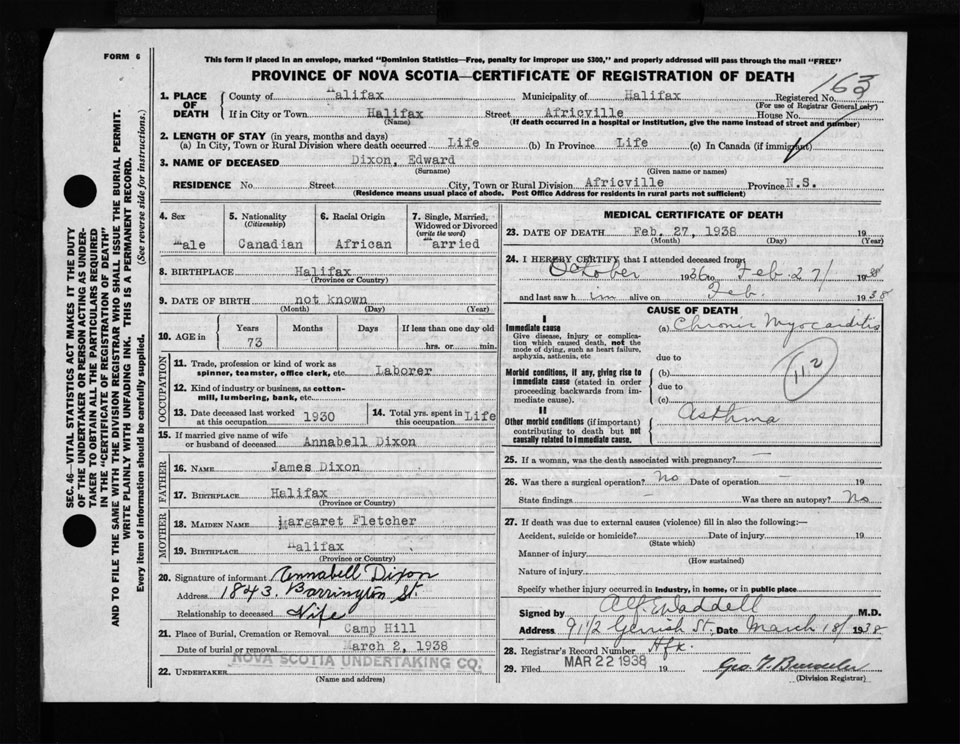 FORM 6
This form if placed in an envelope, marked "Dominion Statistics—Free, penalty for improper use $300," and properly addressed will pass through the mail "FREE"
PROVINCE OF NOVA SCOTIA—CERTIFICATE OF REGISTRATION OF DEATH
163
SEC. 46—VITAL STATISTICS ACT MAKES IT THE DUTY
OF THE UNDERTAKER OR PERSON ACTING AS UNDER-
TAKER TO OBTAIN ALL THE PARTICULARS REQUIRED
IN THE "CERTIFICATE OF REGISTRATION OF DEATH"
AND TO FILE THE SAME WITH THE DIVISION REGISTRAR WHO SHALL ISSUE THE BURIAL PERMIT.
WRITE PLAINLY WITH UNFADING INK. THIS IS A PERMANENT RECORD.
Every item of information should be carefully supplied. (See reverse side for instructions.)
1. PLACE OF DEATH
County of Halifax Municipality of Halifax Registered No.
(For use of Registrar General only)
If in City or Town Halifax Street Africville House No.
(Name) (If death occurred in a hospital or institution, give the name instead of street and number)
2. LENGTH OF STAY (in years, months and days)
(a) In City, Town or Rural Division where death occurred Life (b) In Province Life (c) In Canada (if immigrant)
3. NAME OF DECEASED Dixon, Edward
(Surname) (Given name or names)
RESIDENCE No. Street City, Town or Rural Division Africville Province N.S.
(Residence means usual place of abode. Post Office Address for residents in rural parts not sufficient)
4. Sex
Male
5. Nationality
(Citizenship)
Canadian
6. Racial Origin
African
7. Single, Married,
Widowed or Divorced
(write the word)
Married
8. BIRTHPLACE Halifax
(Province or Country)
9. DATE OF BIRTH not known
(Month) (Day) (Year)
10. AGE in
Years Months Days If less than one day old
73 hrs. or min.
OCCUPATION
11. Trade, profession or kind of work as
spinner, teamster, office clerk, etc. Laborer
12. Kind of industry or business, as cotton-
mill, lumbering, bank, etc.
13. Date deceased last worked
at this occupation 1930
14. Total yrs. spent in
this occupation Life
15. If married give name of wife
or husband of deceased Annabell Dixon
FATHER
16. NAME James Dixon
17. BIRTHPLACE Halifax
(Province or Country)
MOTHER
18. MAIDEN NAME Margaret Fletcher
19. BIRTHPLACE Halifax
(Province or Country)
20. Signature of informant Annabell Dixon
Address 1843 Barrington St.
Relationship to deceased Wife
21. Place of Burial, Cremation or Removal Camp Hill
Date of burial or removal March 2, 1938
22. UNDERTAKER NOVA SCOTIA UNDERTAKING CO.
(Name and address)
MEDICAL CERTIFICATE OF DEATH
23. DATE OF DEATH Feb. 27, 1938 19
(Month) (Day) (Year)
24. I HEREBY CERTIFY that I attended deceased from
October 1936 to Feb. 27/ 1938
and last saw him alive on Feb. 1938
CAUSE OF DEATH
I
Immediate cause
Give disease, injury or complica-
tion which caused death, not the
mode of dying, such as heart failure,
asphyxia, asthenia, etc.
(a) Chronic Myocarditis
due to
Morbid conditions, if any, giving rise to
immediate cause (stated in order
proceeding backwards from im-
mediate cause).
(b)
due to
(c)
112
II
Other morbid conditions (if important)
contributing to death but not
causally related to immediate cause.
Asthma
25. If a woman, was the death associated with pregnancy? —
26. Was there a surgical operation? No Date of operation —
State findings — Was there an autopsy? No
27. If death was due to external causes (violence) fill in also the following:—
Accident, suicide or homicide? Date of injury 19
(State which)
Manner of injury
(How sustained)
Nature of injury
Specify whether injury occurred in industry, in home, or in public place
Signed by Alf. E. Waddell M.D.
Address 91 1/2 Gerrish St. Date March 18/ 1938
28. Registrar's Record Number Hfx.
29. Filed MAR 22 1938 19
(Division Registrar)